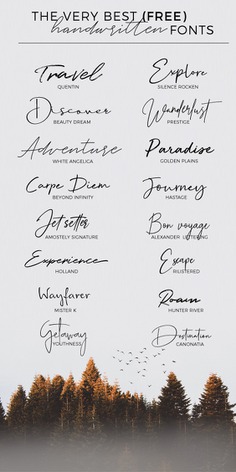 THE VERY BEST (FREE)
handwritten FONTS
Travel
QUENTIN
Explore
SILENCE ROCKEN
Discover
BEAUTY DREAM
Wanderlust
PRESTIGE
Adventure
WHITE ANGELICA
Paradise
GOLDEN PLAINS
Carpe Diem
BEYOND INFINITY
Journey
HASTAGE
Jetsetter
AMOSTELY SIGNATURE
Bon voyage
ALEXANDER LETTERING
Experience
HOLLAND
Escape
RILISTERED
Wayfarer
MISTER K
Roam
HUNTER RIVER
Getaway
YOUTHNESS
Destination
CANONATIA